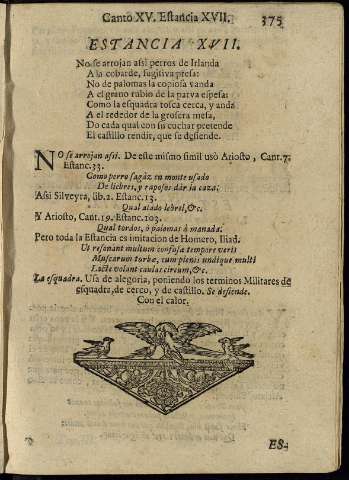 Canto XV. Estancia XVII. 375
ESTANCIA XVII.
No se arrojan assi perros de Irlanda
A la cobarde, fugitiva presa:
No de palomas la copiosa vanda
A el grano rubio de la parva espesa:
Como la esquadra tosca cerca, y anda
A el rededor de la grosera mesa,
Do cada qual con su cuchar pretende
El castillo rendir, que se defiende.
NO se arrojan assi. De este mismo simil usò Ariosto, Cant. 7.
Estanc. 33.
Como perro sagàz en monte usado
De liebres, y raposos dàr la caza;
Assi Silveyra, lib. 2. Estanc. 13.
Qual atado lebrel, &c.
Y Ariosto, Cant. 19. Estanc. 103.
Qual tordos, ò palomas à manada.
Pero toda la Estancia es imitacion de Homero, Iliad.
Ut resonant multum confusa tempore veris
Muscarum turbæ, cum plenis undique multi
Lacte volant caulas circum, &c.
La esquadra. Usa de alegoria, poniendo los terminos Militares de
esquadra, de cerco, y de castillo. Se defiende.
Con el calor.
ES-